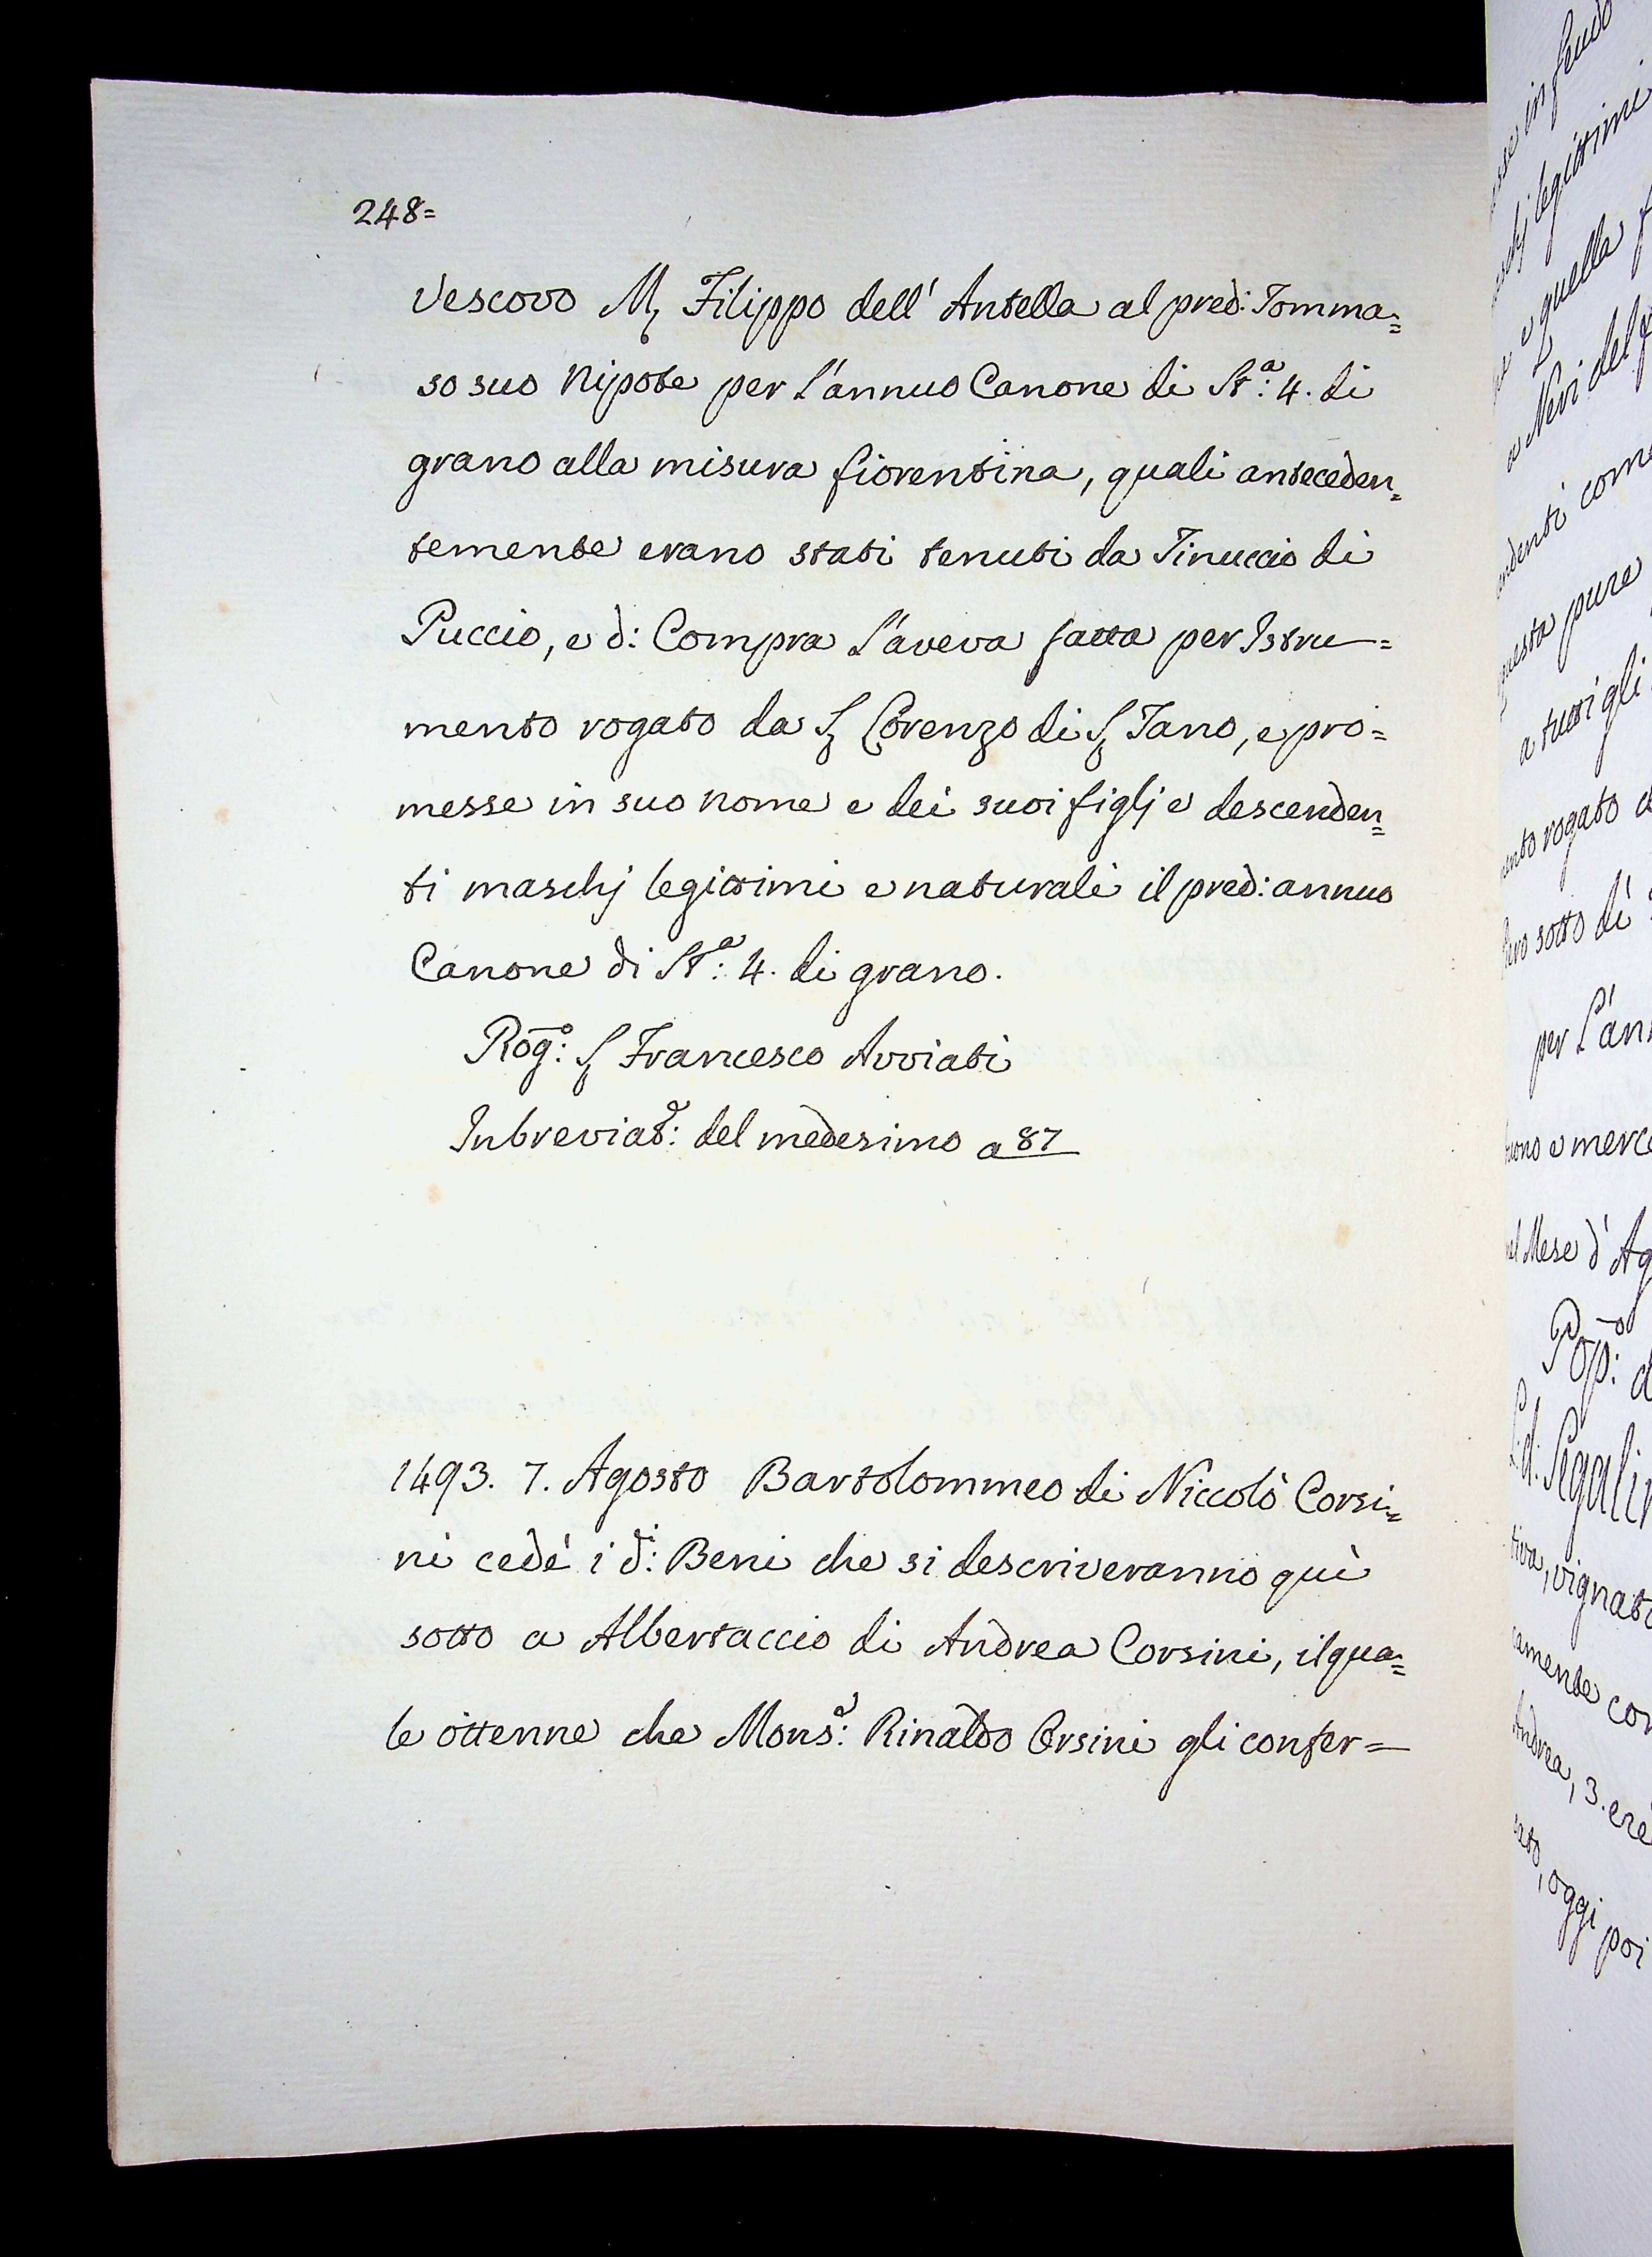 248=
Vescovo M, Filippo dell' Antella al pred: Tomma=
so suo Nipote per l'annuo Canone di Stª: 4. di
grano alla misura fiorentina, quali anteceden=
temente erano stati tenuti da Tinuccio di
Puccio, e d: Compra l'aveva fatta per Istru=
mento rogato da S, Lorenzo di S, Tano, e pro=
messe in suo nome e dei suoi figlj e descenden=
ti maschj legittimi e naturali il pred: annuo
Canone di Stª: 4. di grano.
Rogº: S, Francesco Avviati
Inbreviat: del medesimo a 87
1493. 7. Agosto Bartolommeo di Niccolò Corsi=
ni cedè i di: Beni che si descriveranno quì
sotto a Albertaccio di Andrea Corsini, il qua=
le ottenne che Mons: Rinaldo Orsini gli confer=
in feudo
legittimi
e quella
a Neri del
come
questa pure
a tutti gli
rogato
sotto dì
per l'an
e merc
Mese d' Ag
Popº: d
Segali
vignat
camente con
Andrea, 3. ere
, oggi poi